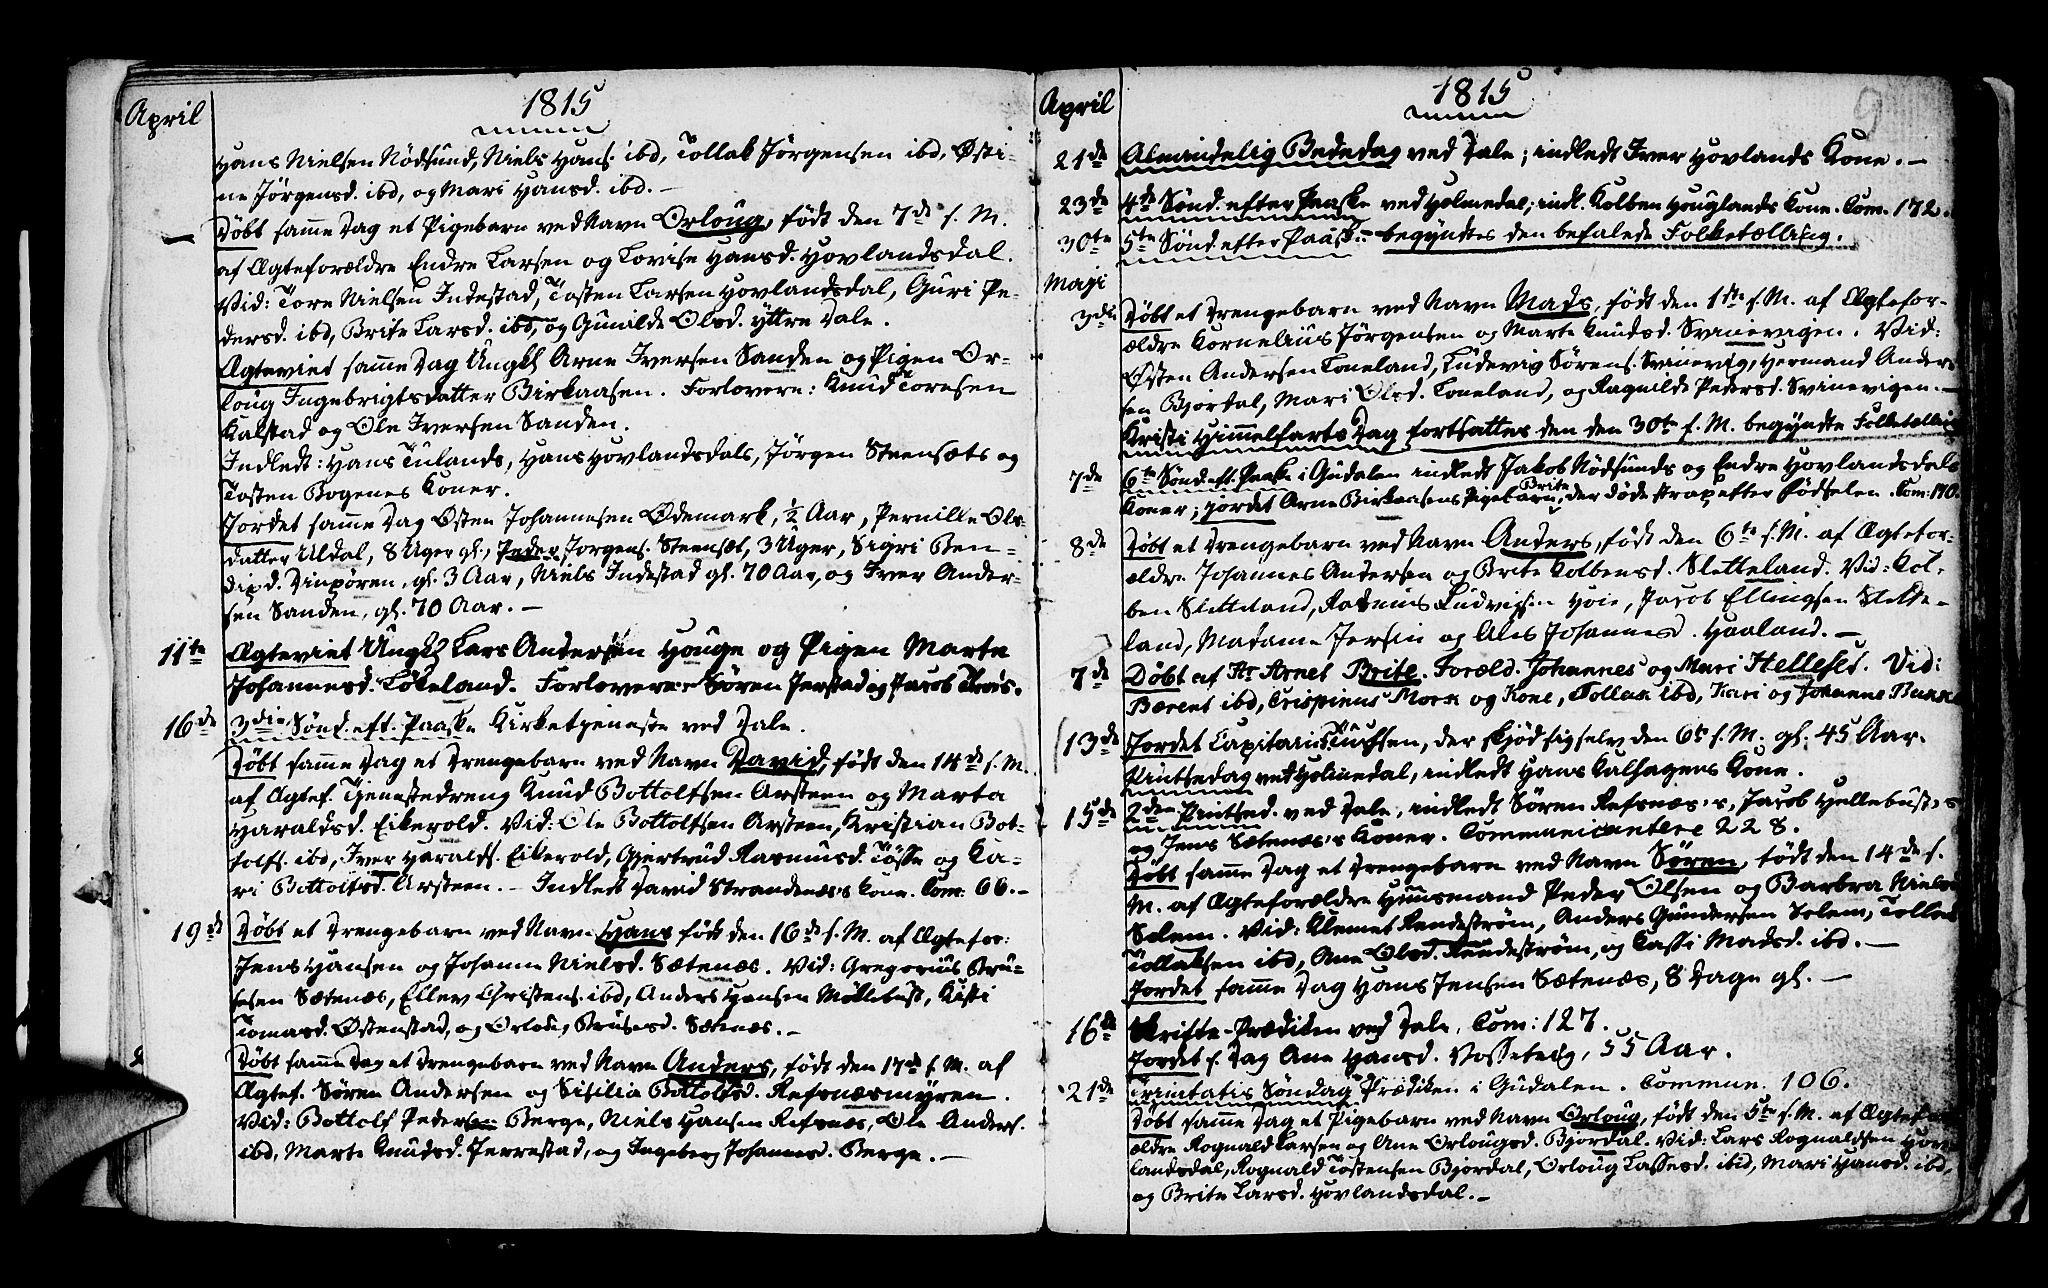 April
1815
Hans Nielsen Nödsund, Niels Hans. ibd, Tollak Jörgensen ibd, Østi-
ne Jörgensd. ibd, og Mari Hansd. ibd. —
Döbt samme Dag et Pigebarn ved Navn Orloug, födt den 7de s. M.
af Ægteforældre Endre Larsen og Lovise Hansd. Hovlandsdal.
Vid: Tore Nielsen Indestad, Tosten Larsen Hovlandsdal, Guri Pe-
dersd. ibd, Brite Larsd. ibd, og Gunilde Olsd. Yttre Dale.
Ægteviet samme Dag Ungk. Arne Iversen Sanden og Pigen Or-
loug Ingebrigtsdatter Birkaasen. Forlovere: Knud Toresen
Kalstad og Ole Iversen Sanden.
Indledt: Hans Tulands, Hans Hovlandsdals, Jörgen Steensæts og
Tosten Bogenes Koner.
Jordet samme Dag Østen Johannesen Ødemark, 1/2 Aar, Pernille Ols-
datter Uldal, 8 Uger gl., Peder Jorgens. Steensæt, 3 Uger, Sigri Ben-
dixd. gl. 3 Aar, Niels Indestad gl. 70 Aar, og Iver Ander-
sen Sanden, gl. 70 Aar. —
11te Ægteviet Ungk. Lars Andersen Houge og Pigen Marte
Johannesd. Lökeland. Forlovere: Sören Jerstad og Jacob
16de 3die Sönd. eft. Paaske Kirketjeneste ved Dale.
Döbt samme Dag et Drengebarn ved Navn David, födt den 14de s. M.
af Ægtef. Tjenestedreng Knud Bottolfsen Arsteen og Marta
Haraldsd. Eikerold. Vid: Ole Bottolfsen Arsteen, Kristian Bot-
tolfs. ibd, Iver Haralds. Eikerold, Gjertrud Rasmusd. Tösse og Ka-
ri Bottolfsd. Arsteen. — Indledt David Strandenæs's Kone. Com. 66. —
19de Döbt et Drengebarn ved Navn Hans födt den 16de s. M. af Ægtefor:
Jens Hansen og Johanne Nielsd. Sætenæs. Vid: Gregorius Bru-
sesen Sætenæs, Ellev Christens. ibd, Anders Hansen Möllebust, Kisti
Tomasd. Østenstad, og Orloug Brusesd. Sætenæs. —
Döbt samme Dag et Drengebarn ved Navn Anders, födt den 17de s. M. af
Ægtef. Sören Andersen og Sisilia Bottolfsd. Refsnæsmyren.
Vid: Bottolf Pedersen Berge, Niels Hansen Refsnæs, Ole Anders.
ibd, Marte Knudsd. Jerrestad, og Ingeborg Johannesd. Berge. —
April
1815
9
21de Almindelig Bededag ved Dale; indledt Iver Hovlands Kone. —
23de 4de Sönd. efter Paaske ved Holmedal; indl. Kolben Houglands Kone. Com. 172.
30te 5te Sönd. efter Paask: — begyndtes den befalede Folketælling.
Maji
3de Döbt et Drengebarn ved Navn Mads, födt den 1ste s. M. af Ægtefor-
ældre Kornelius Jörgensen og Marte Knudsd. Svinevigen. Vid:
Østen Andersen Loneland, Ludevig Sörens. Svinevig, Hermand Ander-
sen Bjordal, Mari Olsd. Loneland, og Ragnilde Pedersd. Svinevigen. —
Kristi Himmelfarts Dag fortsattes den den 30te f. M. begyndte Folketælling
7de 6te Sönd. eft. Paaske i Gudalen indledt Jakob Nödsunds og Endre Hovlandsdals
Koner; jordet Arne Birkaasens Pigebarn Brite, der döde strax efter Födselen. Com: 170.
8de Döbt et Drengebarn ved Navn Anders, födt den 6te s. M. af Ægtefor-
ældre Johannes Andersen og Brite Kolbensd. Sletteland. Vid: Kol-
ben Sletteland, Rasmus Ludvigsen Hoie, Jacob Ellingsen Slette-
land, Madame Jersin og Ales Johannesd. Haaland. —
7de Döbt af Hr Arnet Brite. Foræld. Johannes og Mari Helleset. Vid:
Bærent ibd, Crispinus Mork og Kone, Tollak ibd, Kari og Johanne Bakke
13de Jordet Capitain Tuchsen, der skjöd sig selv den 6te s. M. gl. 45 Aar.
Pintsedag ved Holmedal, indledt Hans Kalhagens Kone.
15de 2den Pintsed. ved Dale, indledt Sören Refsnæs's, Jacob Hellebust's
og Jens Sætenæs's Koner. Communicantere 228.
Döbt samme Dag et Drengebarn ved Navn Sören, födt den 14de s.
M. af Ægteforældre Huusmand Peder Olsen og Barbra Nielsd
Solem. Vid: Klemet Rendeström, Anders Gundersen Solem, Tollev
Tollaksen ibd, Ane Olsd. Rendeström, og Kassi Madsd. ibd. —
Jordet samme Dag Hans Jensen Sætenæs, 8 Dage gl. —
16de Skrifte-Prædiken ved Dale, Com: 127.
Jordet s. Dag Ane Hansd. Vosseteig, 55 Aar.
21de Trinitatis Söndag Prædiken i Gudalen. Commun. 106.
Döbt samme Dag et Pigebarn ved Navn Orloug, födt den 5te s. M. af Ægtefor-
ældre Rognald Larsen og Ane Orlougsd. Bjordal. Vid: Lars Rognaldsen Hov-
landsdal, Rognald Tostensen Bjordal, Orloug Lassesd. ibid, Mari Hansd. ibd,
og Brite Larsd. Hovlandsdal. —